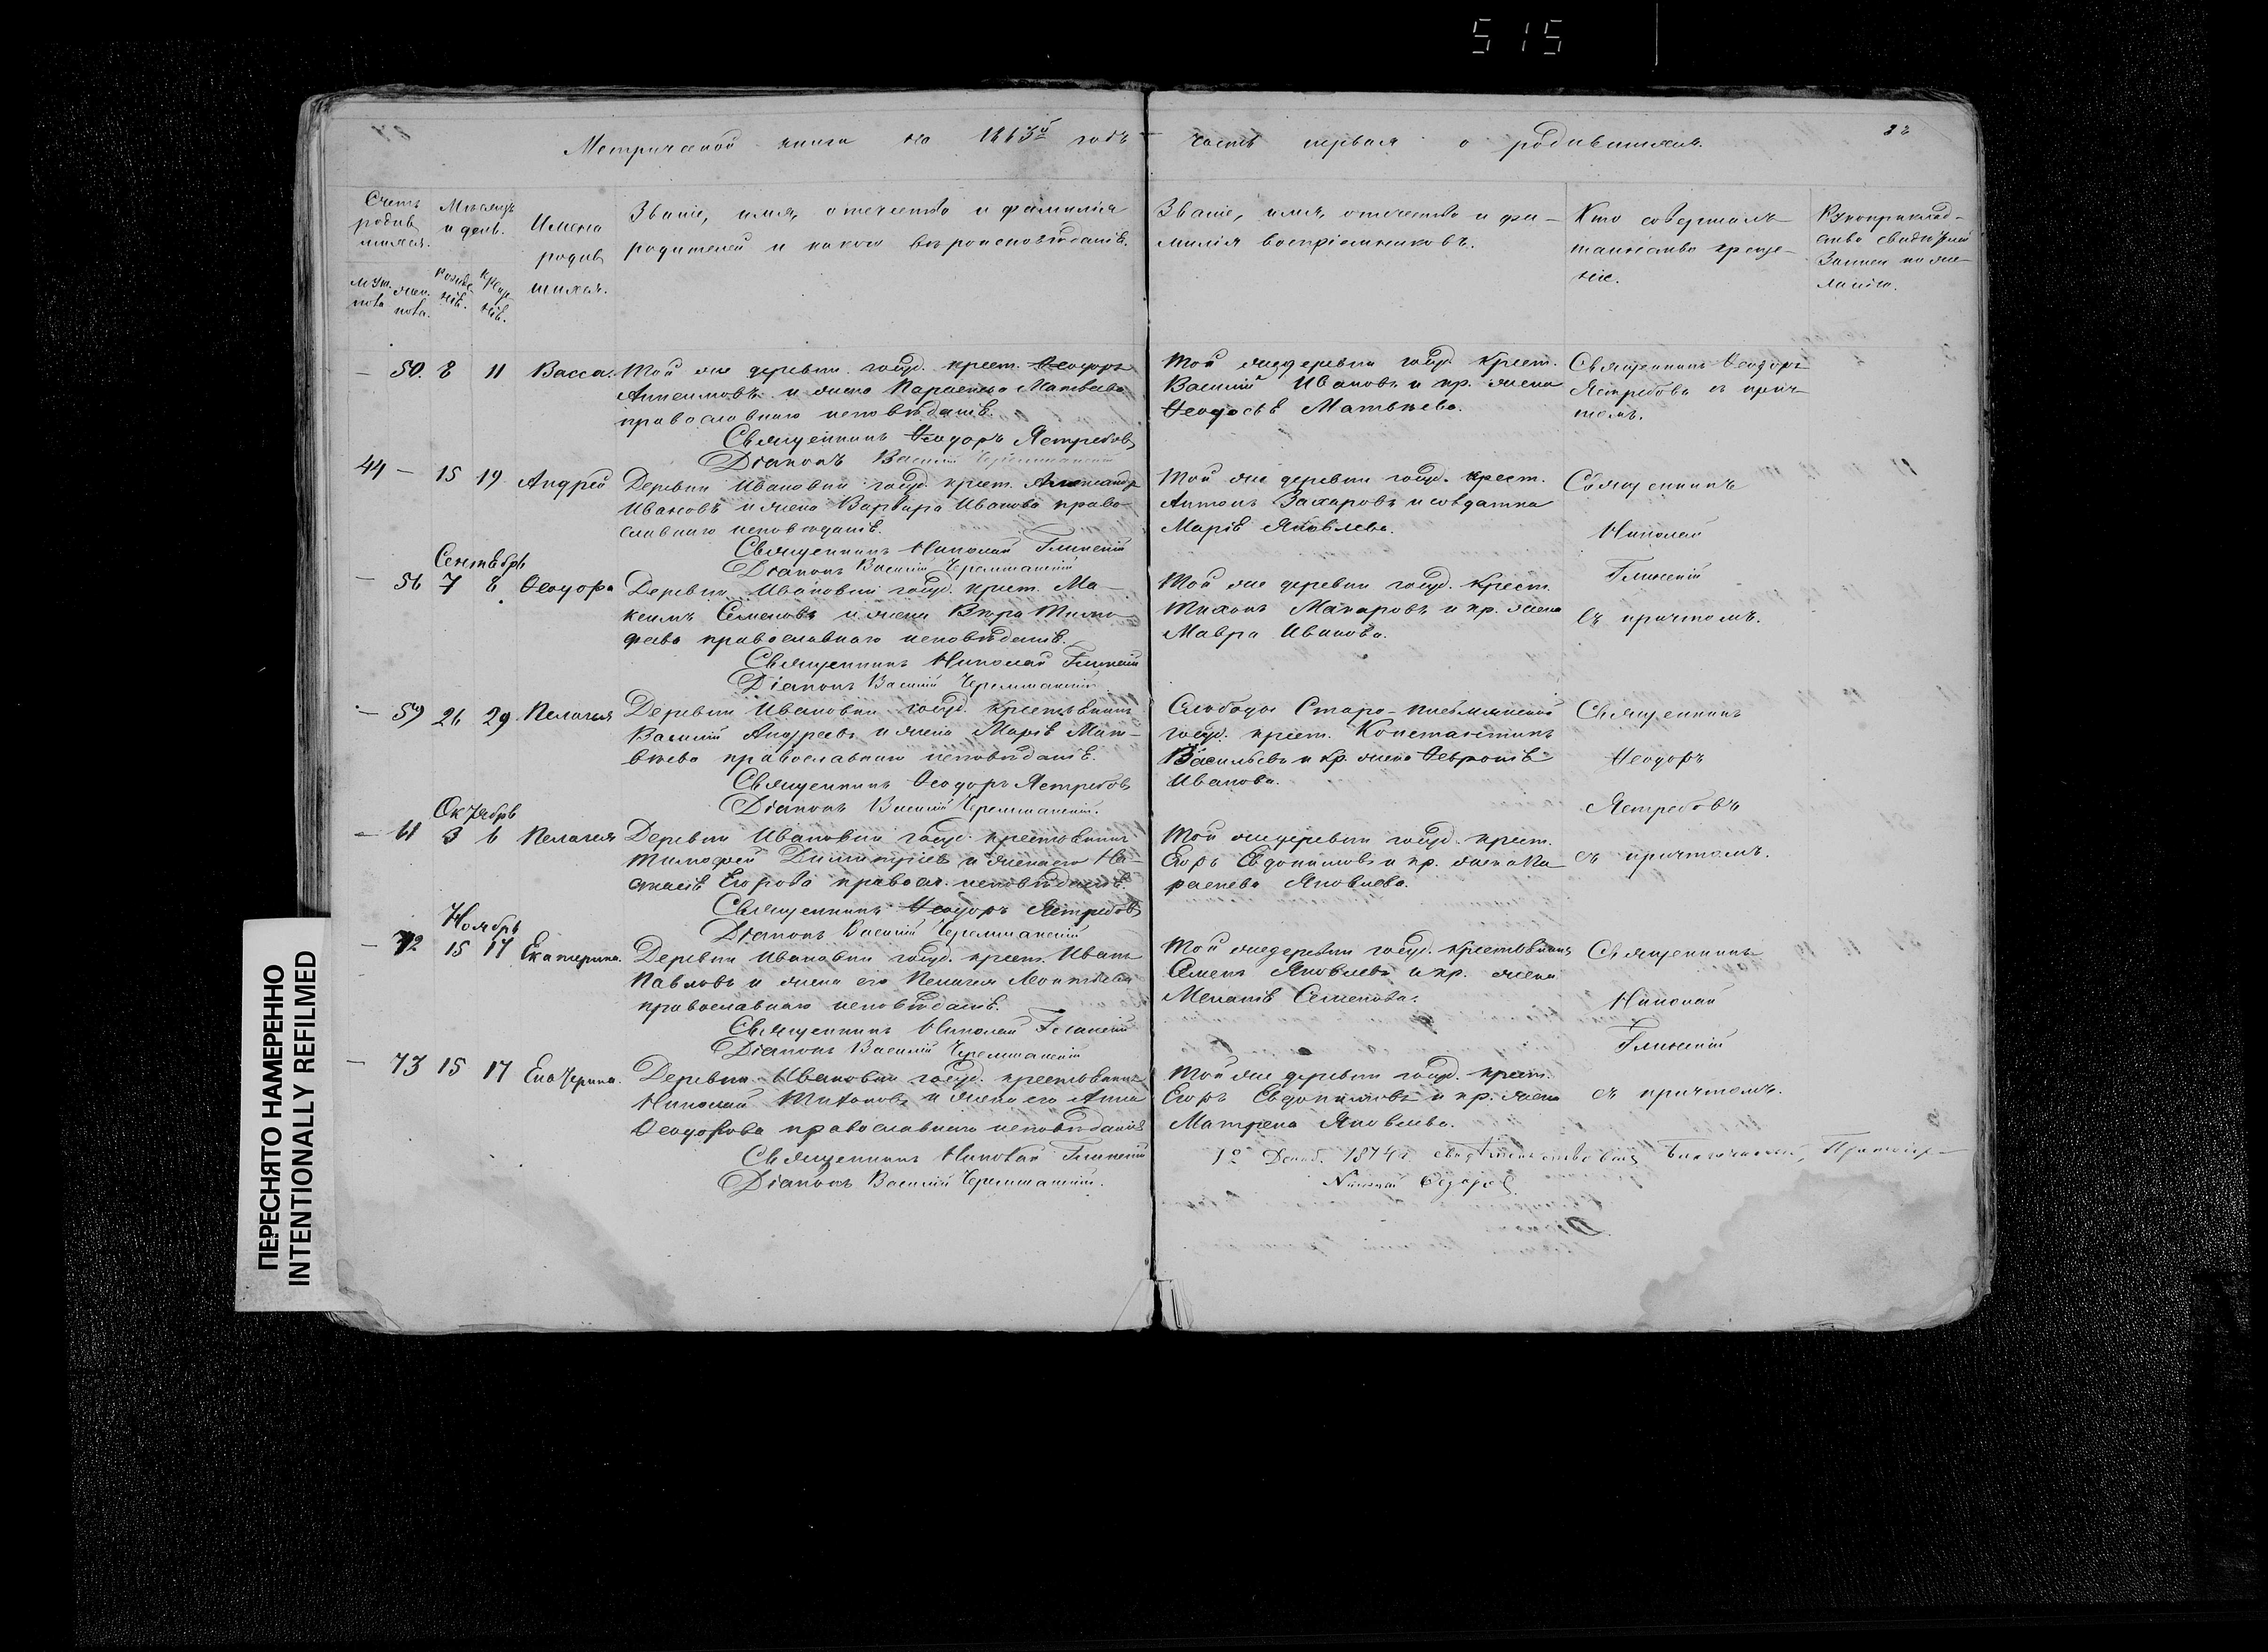 515
Метрической книги на 1863й годъ часть первая о родившихся.
32
Счетъ родив шихся.
муж. пола
жен. пола.
Мѣсяцъ и день.
рожде- нія.
креще- нія.
Имена
родив
шихся.
Званіе, имя, отечество и фамилія
родителей и какого вѣроисповѣданія.
Званіе, имя, отечество и фа-
милія воспріемниковъ.
Кто совершалъ
таинство креще-
ніе.
Рукоприклад-
ство свидѣтелей
записи по же-
ланію.
— 50. 8 11 Васса. Той же деревни госуд. крест. Ѳеодоръ
Анисимовъ и жена Параскева Матвеева
православнаго исповѣданія.
Священникъ Ѳеодоръ Ястребовъ
Діаконъ Василій Черемшанскій
Той же деревни госуд. крест.
Василій Ивановъ и кр. жена
Ѳеодосія Матвѣева.
Священникъ Ѳеодоръ
Ястребовъ съ прич-
томъ.
44 — 15 19 Андрей Деревни Ивановки госуд. крест. Александръ
Ивановъ и жена Варвара Иванова право-
славнаго исповѣданія.
Священникъ Николай Глинскій
Діаконъ Василій Черемшанскій
Той же деревни госуд. крест.
Антонъ Захаровъ и солдатка
Марія Яковлева.
Священникъ
Николай
Глинскій
съ причтомъ.
Сентябрь
— 56 7 8 Ѳеодора Деревни Ивановки госуд. крест. Ма-
ксимъ Семеновъ и жена Вѣра Тимо-
феева православнаго исповѣданія.
Священникъ Николай Глинскій
Діаконъ Василій Черемшанскій
Той же деревни госуд. крест.
Тихонъ Макаровъ и кр. жена
Мавра Иванова.
— 59 26 29 Пелагея Деревни Ивановки госуд. крестьянинъ
Василій Андреевъ и жена Марія Мат-
вѣева православнаго исповѣданія.
Священникъ Ѳеодоръ Ястребовъ
Діаконъ Василій Черемшанскій.
Слободы Старо-письмянской
госуд. крест. Константинъ
Васильевъ и кр. жена Февронія
Иванова.
Священникъ
Ѳеодоръ
Ястребовъ
съ причтомъ.
Октябрь
— 61 3 6 Пелагея Деревни Ивановки госуд. крестьянинъ
Тимофей и жена его На-
стасія Егорова правосл. исповѣданія.
Священникъ Ѳеодоръ Ястребовъ
Діаконъ Василій Черемшанскій
Той же деревни госуд. крест.
Егоръ Евдокимовъ и кр. жена Па
раскева Яковлева.
Ноябрь
— 72 15 17 Екатерина. Деревни Ивановки госуд. крест. Иванъ
Павловъ и жена его Пелагея Леонтьева
православнаго исповѣданія.
Священникъ Николай Глинскій
Діаконъ Василій Черемшанскій
Той же деревни госуд. крестьянинъ
Семенъ Яковлевъ и кр. жена
Меланія Семенова.
Священникъ
Николай
Глинскій
съ причтомъ.
— 73 15 17 Екатерина. Деревни Ивановки госуд. крестьянинъ
Николай Тихоновъ и жена его Анна
Ѳеодорова православнаго исповѣданія
Священникъ Николай Глинскій
Діаконъ Василій Черемшанскій.
Той же деревни госуд. крест.
Егоръ Евдокимовъ и кр. жена
Матрена Яковлева.
1874 г. свидѣтельствовалъ Благочинный, Протоіерей
Николай
ПЕРЕСНЯТО НАМЕРЕННО
INTENTIONALLY REFILMED